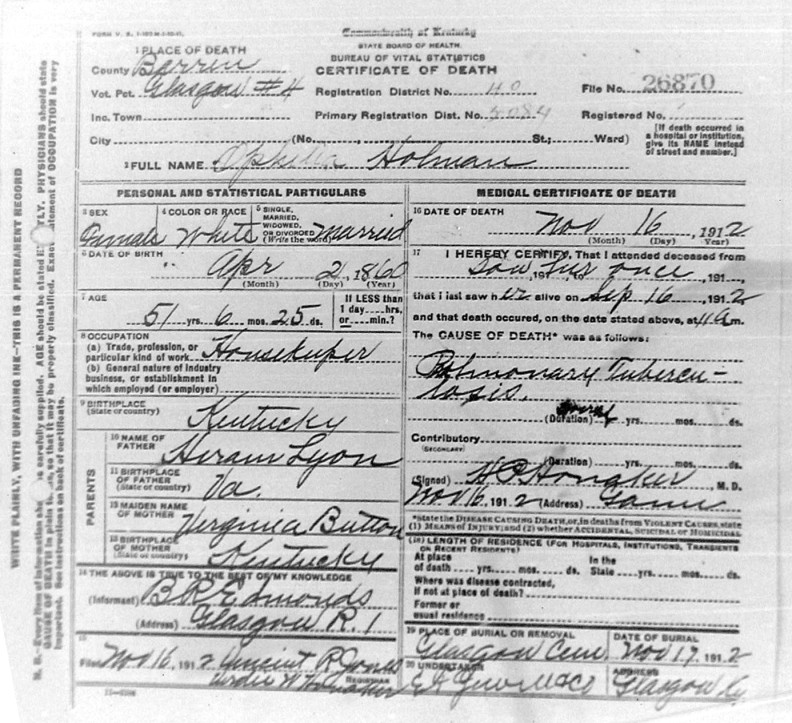 Commonwealth of Kentucky
STATE BOARD OF HEALTH.
BUREAU OF VITAL STATISTICS
CERTIFICATE OF DEATH
1 PLACE OF DEATH
County Barren
Vot. Pct. Glasgow #4
Inc. Town
City (No. St.; Ward)
Registration District No. 40
Primary Registration Dist. No. 5084
File No. 26870
Registered No.
[If death occurred in
a hospital or institution,
give its NAME instead
of street and number.]
2 FULL NAME Ophelia Holman
PERSONAL AND STATISTICAL PARTICULARS
3 SEX Female
4 COLOR OR RACE White
5 SINGLE,
MARRIED,
WIDOWED,
OR DIVORCED
(Write the word) Married
6 DATE OF BIRTH
Apr 2, 1860
(Month) (Day) (Year)
7 AGE
51 yrs. 6 mos. 25 ds.
If LESS than
1 day....hrs.
or....min.?
8 OCCUPATION
(a) Trade, profession, or
particular kind of work Housekeeper
(b) General nature of industry
business, or establishment in
which employed (or employer)
9 BIRTHPLACE
(State or country) Kentucky
PARENTS
10 NAME OF
FATHER Hiram Lyon
11 BIRTHPLACE
OF FATHER
(State or country) Va.
12 MAIDEN NAME
OF MOTHER Virginia Button
13 BIRTHPLACE
OF MOTHER
(State or country) Kentucky
14 THE ABOVE IS TRUE TO THE BEST OF MY KNOWLEDGE
(Informant) B R Edmonds
(Address) Glasgow R. 1
15
Filed Nov 16, 1912 Vincent R Jones
REGISTRAR
MEDICAL CERTIFICATE OF DEATH
16 DATE OF DEATH
Nov 16, 1912
(Month) (Day) Year)
17 I HEREBY CERTIFY, That I attended deceased from
Saw her once, 191..., to, 191...,
that i last saw her alive on Sep 16, 1912
and that death occured, on the date stated above, at 4 a m.
The CAUSE OF DEATH* was as follows:
Pulmonary Tubercu-
losis.
several
(Duration) yrs. mos. ds.
Contributory
(SECONDARY)
(Duration) yrs. mos. ds.
(Signed) Honaker M. D.
Nov 16, 1912 (Address)
*State the DISEASE CAUSING DEATH, or, in deaths from VIOLENT CAUSES, state
(1) MEANS OF INJURY; and (2) whether ACCIDENTAL, SUICIDAL or HOMICIDAL
(18) LENGTH OF RESIDENCE (FOR HOSPITALS, INSTITUTIONS, TRANSIENTS
OR RECENT RESIDENTS)
At place
of death yrs. mos. ds.
In the
State yrs. mos. ds.
Where was disease contracted,
if not at place of death?
Former or
usual residence
19 PLACE OF BURIAL OR REMOVAL
Glasgow Cem
DATE OF BURIAL
Nov 17, 1912
20 UNDERTAKER
ADDRESS
Glasgow Ky
WRITE PLAINLY, WITH UNFADING INK—THIS IS A PERMANENT RECORD